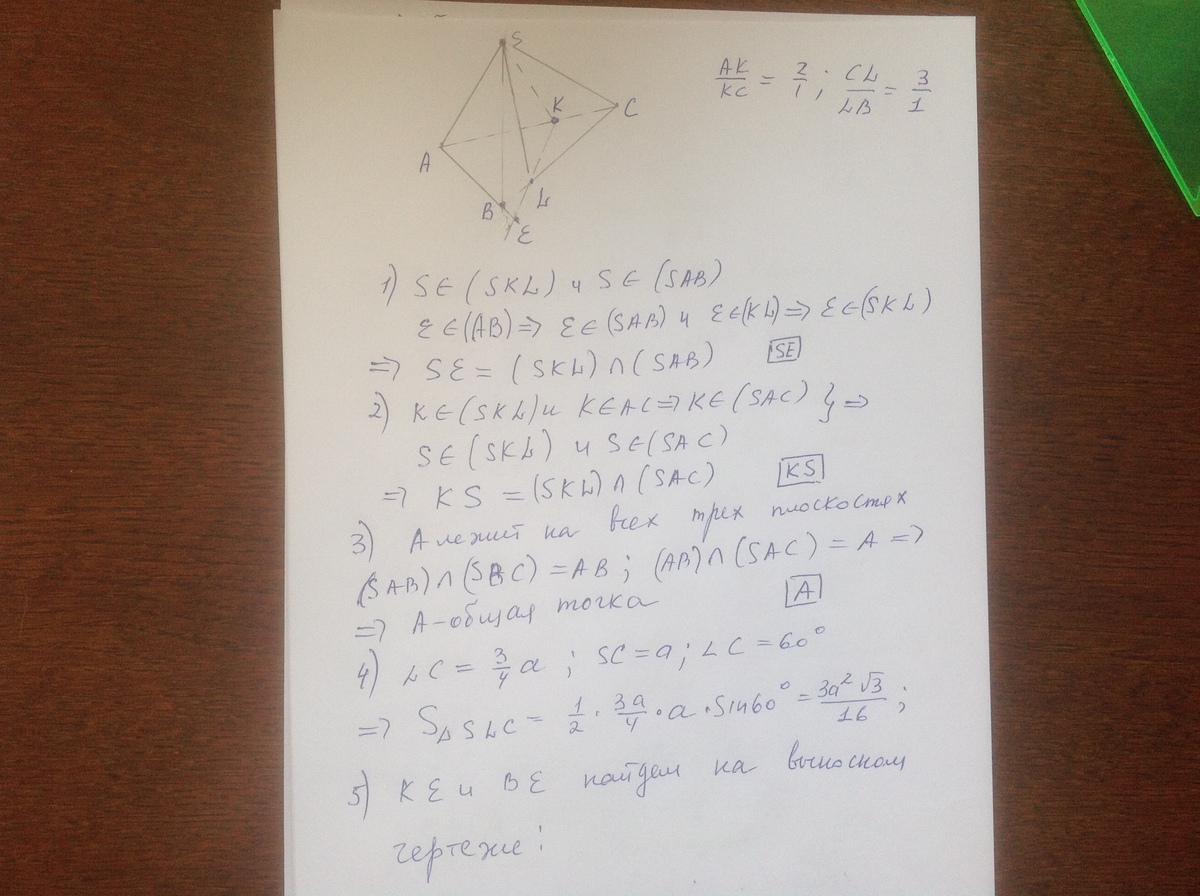 S
K
C
A
B
L
E
AK/KC = 2/1 ; CL/LB = 3/1
1) S∈(SKL) и S∈(SAB)
E∈(AB)⇒ E∈(SAB) и E∈(KL)⇒ E∈(SKL)
⇒ SE = (SKL)∩(SAB) SE
2) K∈(SKL) и K∈AC⇒K∈(SAC) }⇒
S∈(SKL) и S∈(SAC)
⇒ KS = (SKL)∩(SAC) KS
3) A лежит на всех трех плоскостях
(SAB)∩(SBC)=AB; (AB)∩(SAC)=A ⇒
⇒ A-общая точка A
4) LC = 3/4 a ; SC = a; ∠C = 60°
⇒ S△SLC = 1/2 · 3a/4 · a · Sin60° = 3a²√3/16 ;
5) KE и BE найдем на выносном
чертеже: